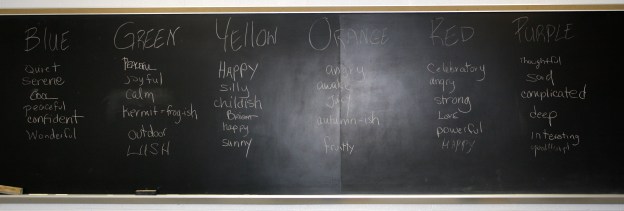 BLUE
Quiet
serene
peaceful
confident
Wonderful
GREEN
Peaceful
joyful
calm
Kermit-frog-ish
outdoor
LUSH
YELLOW
HAPPY
silly
childish
happy
sunny
ORANGE
angry
autumn-ish
fruity
RED
Celebratory
angry
strong
Love
powerful
HAPPY
PURPLE
thoughtful
sad
complicated
deep